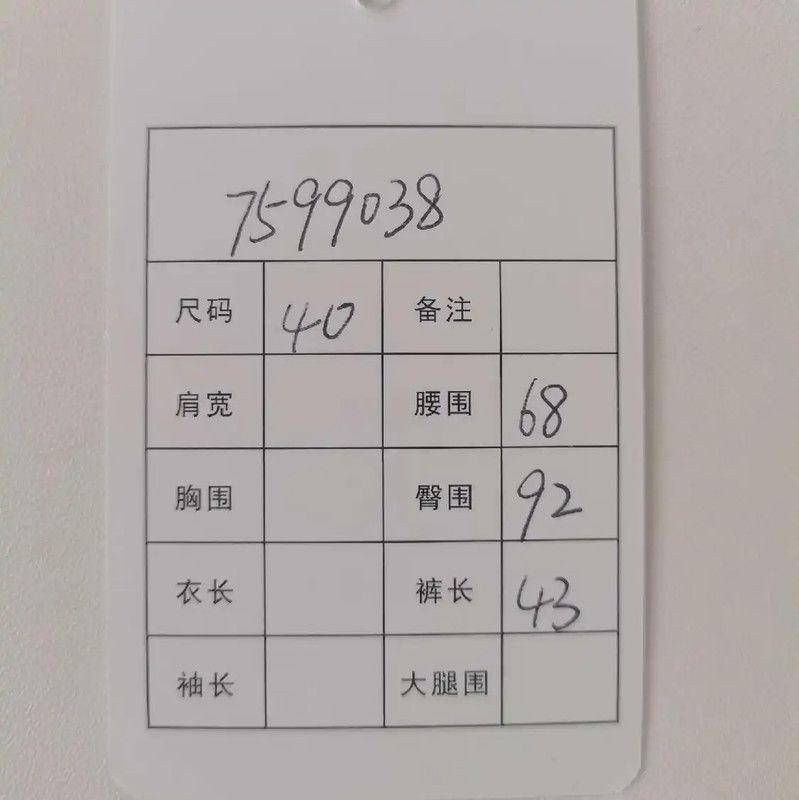 7599038
尺码 40 备注
肩宽 腰围 68
胸围 臀围 92
衣长 裤长 43
袖长 大腿围